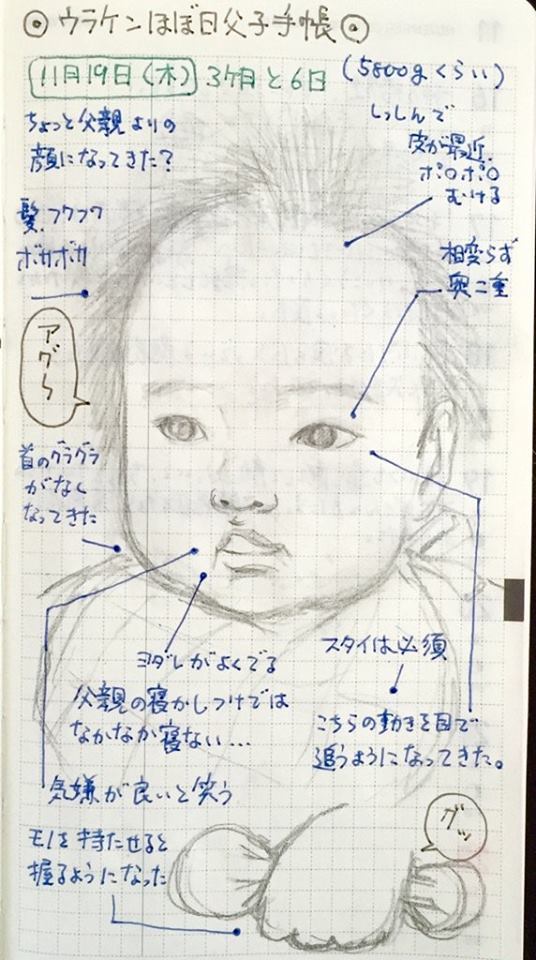 ◎ウラケンほぼ日父子手帳◎
11月19日(木) 3ヶ月と6日 (5800gくらい)
ちょっと父親よりの
顔になってきた?
しっしんで
皮が最近
ポロポロ
むける
髪、フワフワ
ボサボサ
相変らず
奥二重
アグー
首のグラグラ
がなく
なってきた
ヨダレがよくでる
父親の寝かしつけでは
なかなか寝ない…
スタイは必須
こちらの動きを目で
追うようになってきた。
気嫌が良いと笑う
モノを持たせると
握るようになった
グッ